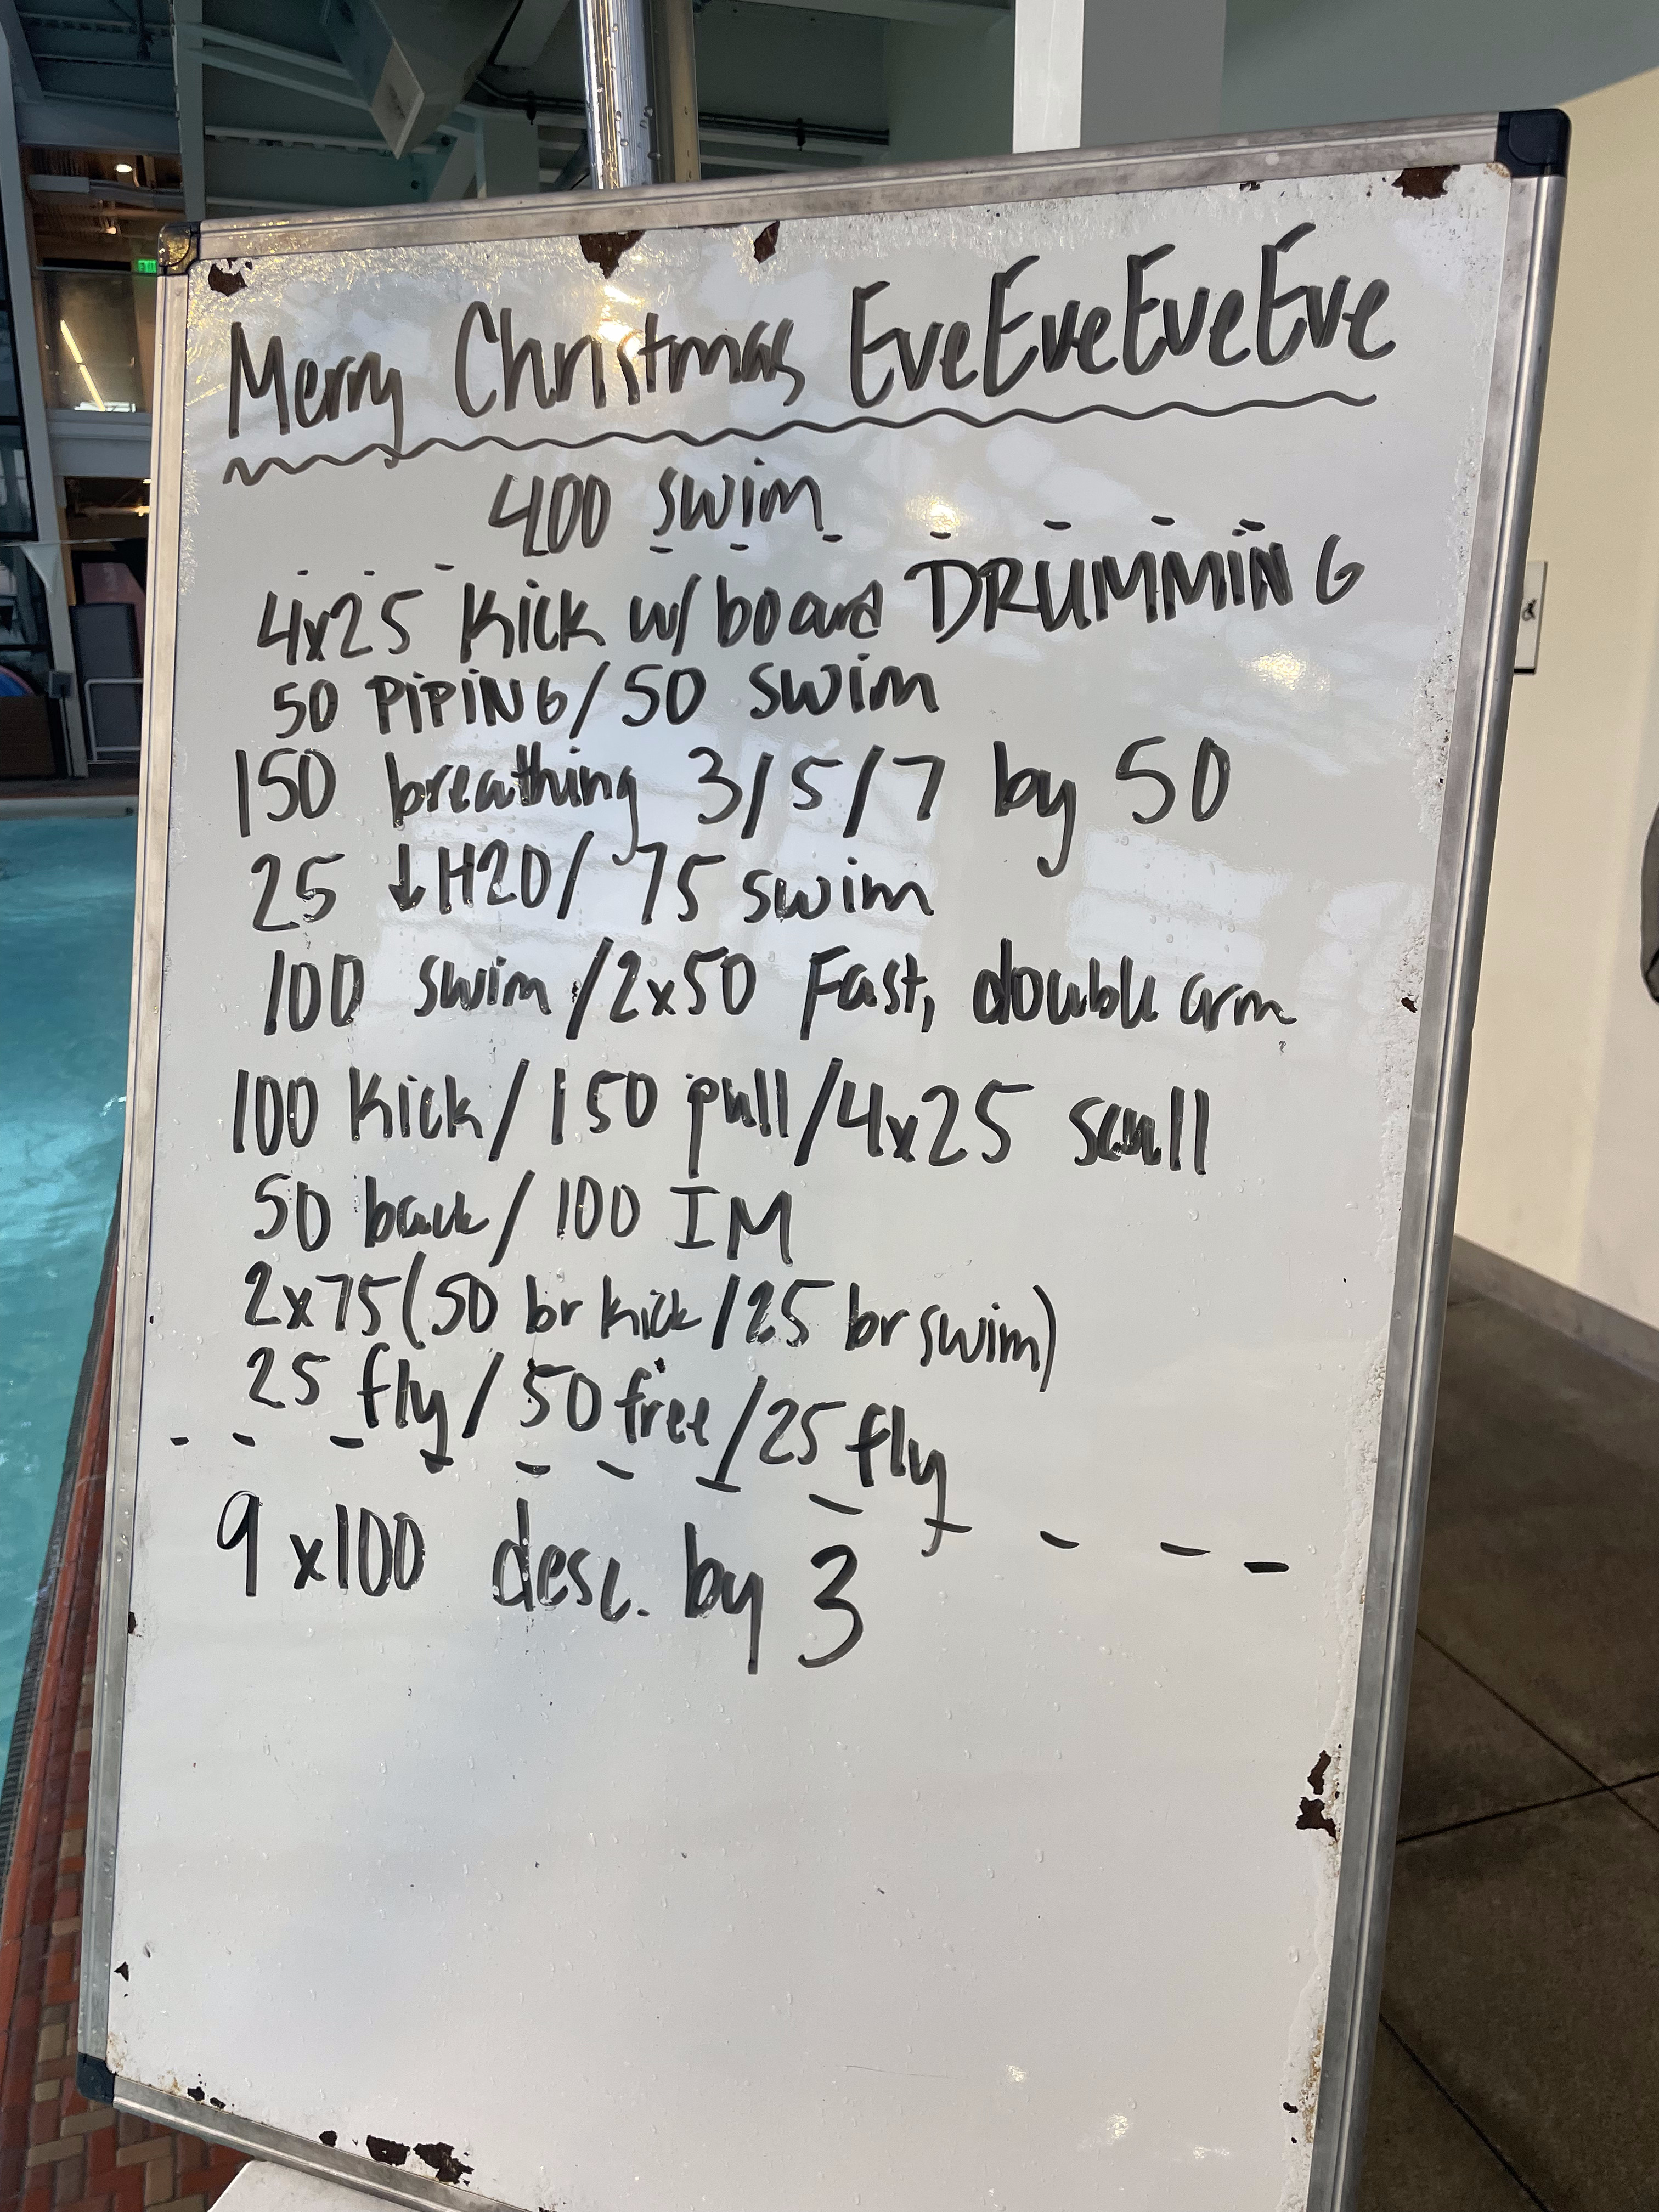 Merry Christmas EveEveEveEve
400 swim
4x25 kick w/ board DRUMMING
50 PIPING/50 swim
150 breathing 3/5/7 by 50
25 ↓H20/ 75 swim
100 swim/2x50 Fast, double arm
100 kick/150 pull/4x25 scull
50 back/100 IM
2x75(50 br kick/25 br swim)
25 fly/50 free/25 fly
9x100 desc. by 3